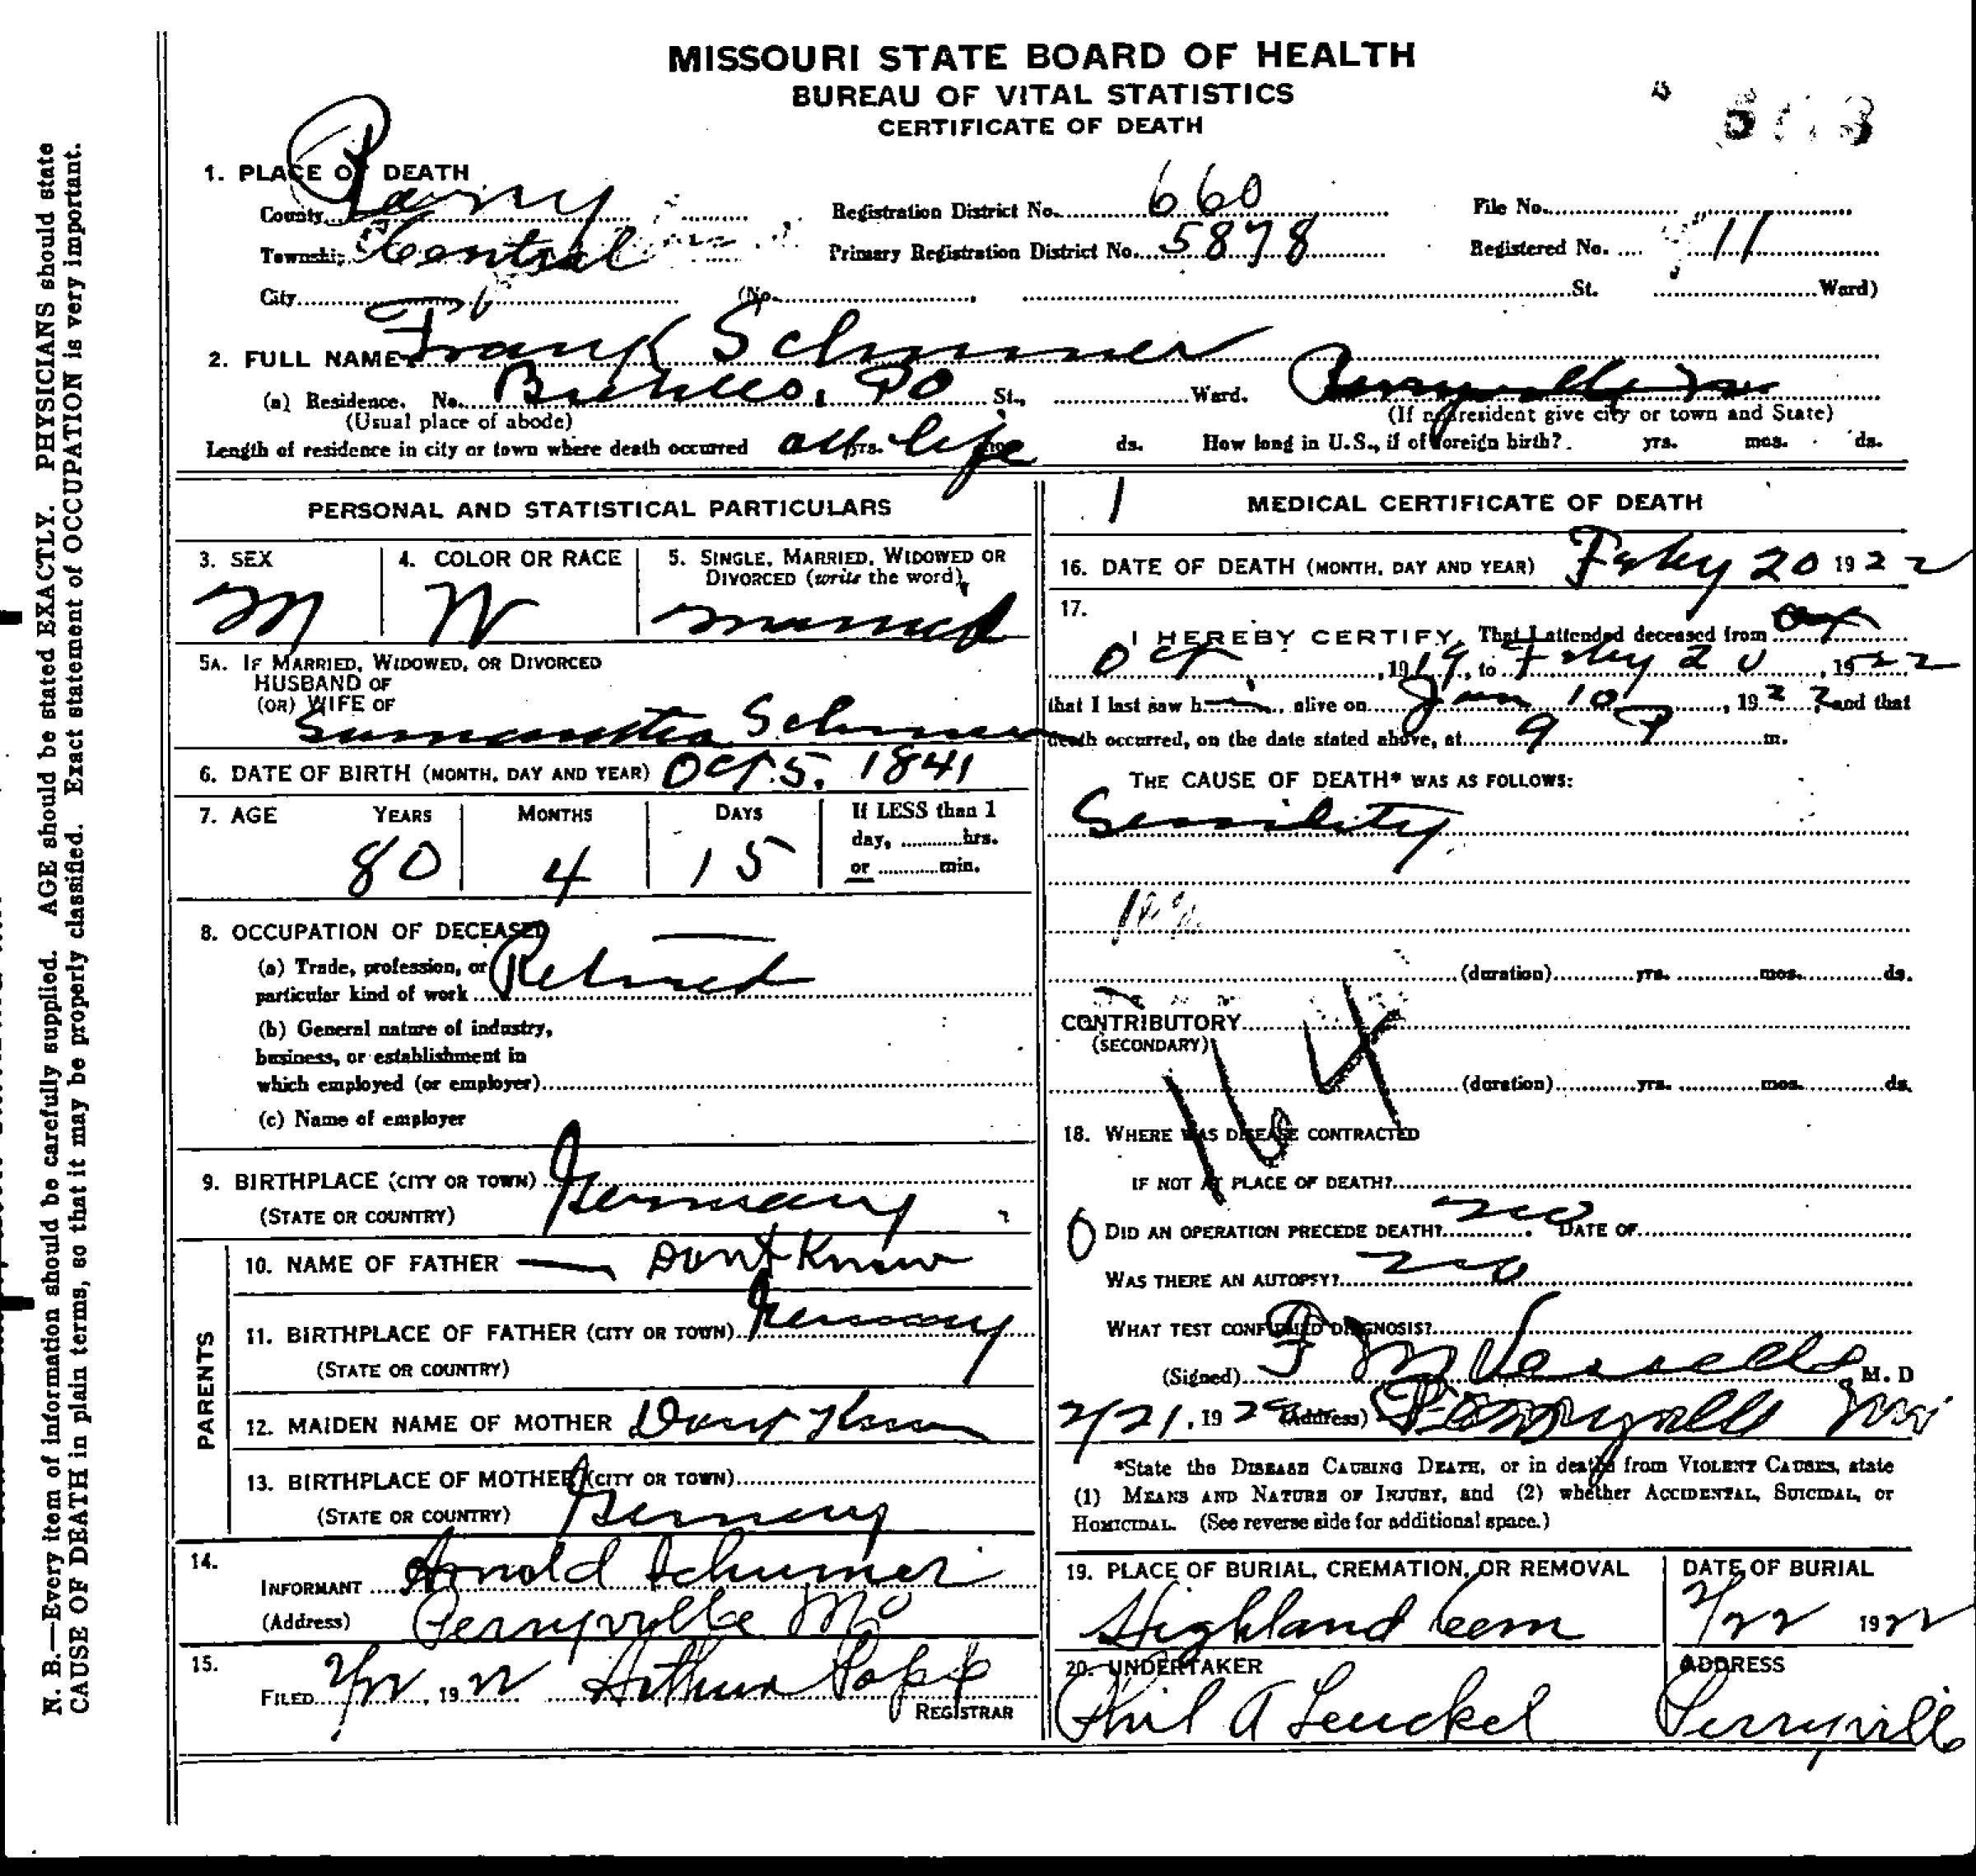 MISSOURI STATE BOARD OF HEALTH
BUREAU OF VITAL STATISTICS
CERTIFICATE OF DEATH
1. PLACE OF DEATH
County Perry Registration District No. 660 File No.
Township Central Primary Registration District No. 5878 Registered No. 11
City (No. St. Ward)
2. FULL NAME Frank Schumer
(a) Residence. No. Biehles, PO St., Ward. Perryville Mo
(Usual place of abode) (If nonresident give city or town and State)
Length of residence in city or town where death occurred all yrs. life mos. ds. How long in U.S., if of foreign birth? yrs. mos. ds.
PERSONAL AND STATISTICAL PARTICULARS
3. SEX 4. COLOR OR RACE 5. SINGLE, MARRIED, WIDOWED OR DIVORCED (write the word)
M W married
5A. IF MARRIED, WIDOWED, OR DIVORCED
HUSBAND OF
(OR) WIFE OF
Schumer
6. DATE OF BIRTH (MONTH, DAY AND YEAR) Oct. 5, 1841
7. AGE YEARS MONTHS DAYS If LESS than 1
day, hrs.
or min.
80 4 15
8. OCCUPATION OF DECEASED
(a) Trade, profession, or
particular kind of work Retired
(b) General nature of industry,
business, or establishment in
which employed (or employer)
(c) Name of employer
9. BIRTHPLACE (CITY OR TOWN)
(STATE OR COUNTRY) Germany
PARENTS
10. NAME OF FATHER Dont Know
11. BIRTHPLACE OF FATHER (CITY OR TOWN) Germany
(STATE OR COUNTRY)
12. MAIDEN NAME OF MOTHER Dont Know
13. BIRTHPLACE OF MOTHER (CITY OR TOWN)
(STATE OR COUNTRY) Germany
14.
INFORMANT Arnold Schumer
(Address) Perryville Mo
15.
FILED 2/22, 1922 Arthur Popp
REGISTRAR
1 MEDICAL CERTIFICATE OF DEATH
16. DATE OF DEATH (MONTH, DAY AND YEAR) Feby 20 1922
17.
I HEREBY CERTIFY, That I attended deceased from
Oct, 1919, to Feby 20, 1922
that I last saw him alive on Jan 10, 1922 and that
death occurred, on the date stated above, at 9 P m.
THE CAUSE OF DEATH* WAS AS FOLLOWS:
Senility
(duration) yrs. mos. ds.
CONTRIBUTORY
(SECONDARY)
164
(duration) yrs. mos. ds.
18. WHERE WAS DISEASE CONTRACTED
IF NOT AT PLACE OF DEATH?
DID AN OPERATION PRECEDE DEATH? no DATE OF
WAS THERE AN AUTOPSY? no
WHAT TEST CONFIRMED DIAGNOSIS?
(Signed) F M Vessells, M. D
2/21, 192 (Address) Perryville Mo
*State the DISEASE CAUSING DEATH, or in deaths from VIOLENT CAUSES, state
(1) MEANS AND NATURE OF INJURY, and (2) whether ACCIDENTAL, SUICIDAL, or
HOMICIDAL. (See reverse side for additional space.)
19. PLACE OF BURIAL, CREMATION, OR REMOVAL DATE OF BURIAL
Highland Cem 2/22 1922
20. UNDERTAKER ADDRESS
Phil A Leuckel Perryville
N. B.—Every item of information should be carefully supplied. AGE should be stated EXACTLY. PHYSICIANS should state
CAUSE OF DEATH in plain terms, so that it may be properly classified. Exact statement of OCCUPATION is very important.